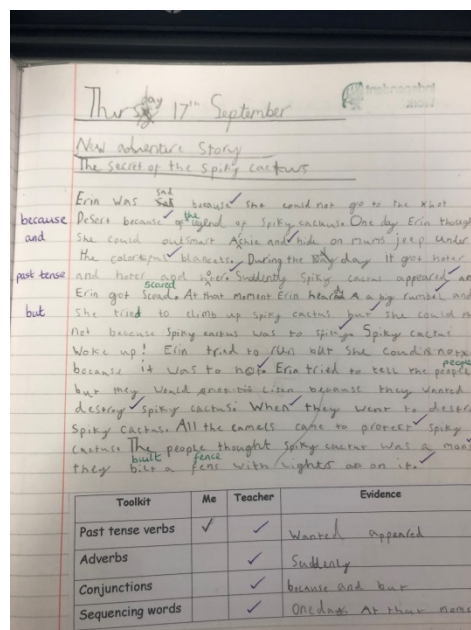 Thursday 17th September
New adventure Story
The secret of the Spiky cactus
Erin was sad because she could not go to the xhot
because Desert because of the legend of Spiky cactus. One day Erin though
and She could outsmart Achie and hide on mums jeep under
the colorful blancets. During the day it got hoter
past tense and hoter and hoter. Suddenly Spiky cactus appeared an
scared
Erin got Scead. At that moment Erin heard a big rumbel and
but She tried to climb up spiky cactus but she could n
not because Spiky cactus was to Spiky
Woke up! Erin tried to run but she could notx
people
because it was to hot. Erin tried to tell the people
but they would lisen because they wanted
destroy spiky cactus. When they went to destr
Spiky Cactus. All the camels came to protect Spiky
cactus. The people thought Spiky cactus was a mon
built fence
they bilt a fens with lights on on it.
Toolkit Me Teacher Evidence
Past tense verbs Wanted appeared
Adverbs Suddenly
Conjunctions because and but
Sequencing words One day At that mome